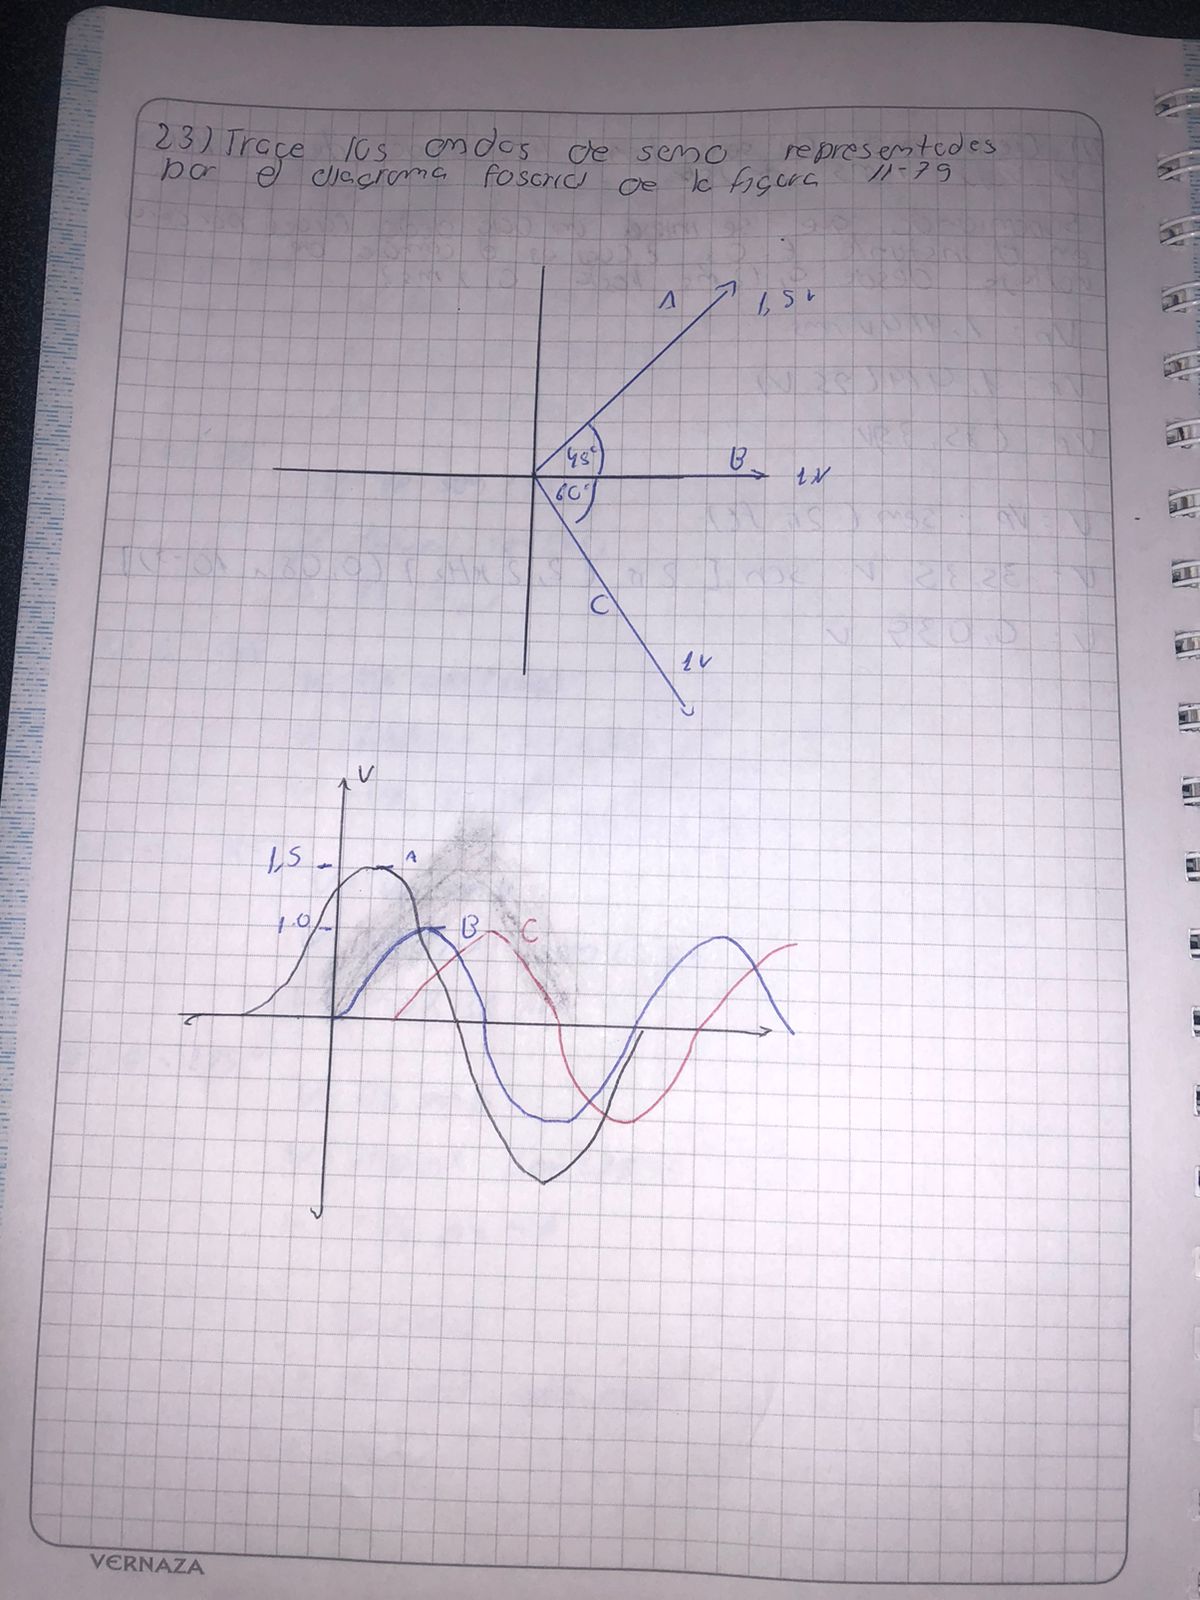 23) Trace las ondas de seno representadas
por el diagrama fasorial de la figura 11-79
A
1,5 v
45°
B
1V
60°
C
1v
V
1,5
A
1.0
B
C
VERNAZA